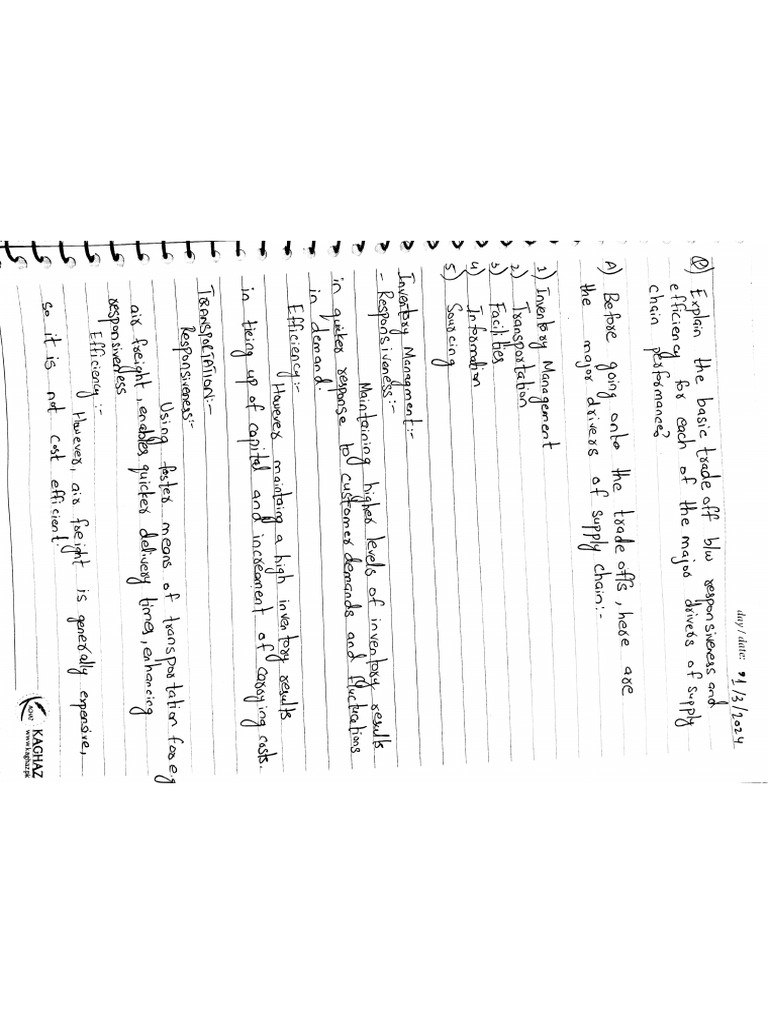 day / date: 21/3/2024
Q) Explain the basic trade off b/w responsiveness and
efficiency for each of the major drivers of supply
chain performance?
A) Before going onto the trade offs, here are
the major drivers of supply chain:-
1) Inventory Management
2) Transportation
3) Facilities
4) Information
5) Sourcing
Inventory Managment:-
- Responsiveness:-
Maintaining higher levels of inventory results
in quicker response to customer demands and fluctuations
in demand.
Efficiency:-
However maintaing a high inventory results
in tieing up of capital and increament of carrying costs.
TRANSPORTATION:-
Responsiveness:-
Using faster means of transportation for eg
air freight, enables quicker delivery times, enhancing
responsiveness
Efficiency:-
However, air freight is generally expensive,
so it is not cost efficient.
KAGHAZ
www.kaghaz.pk